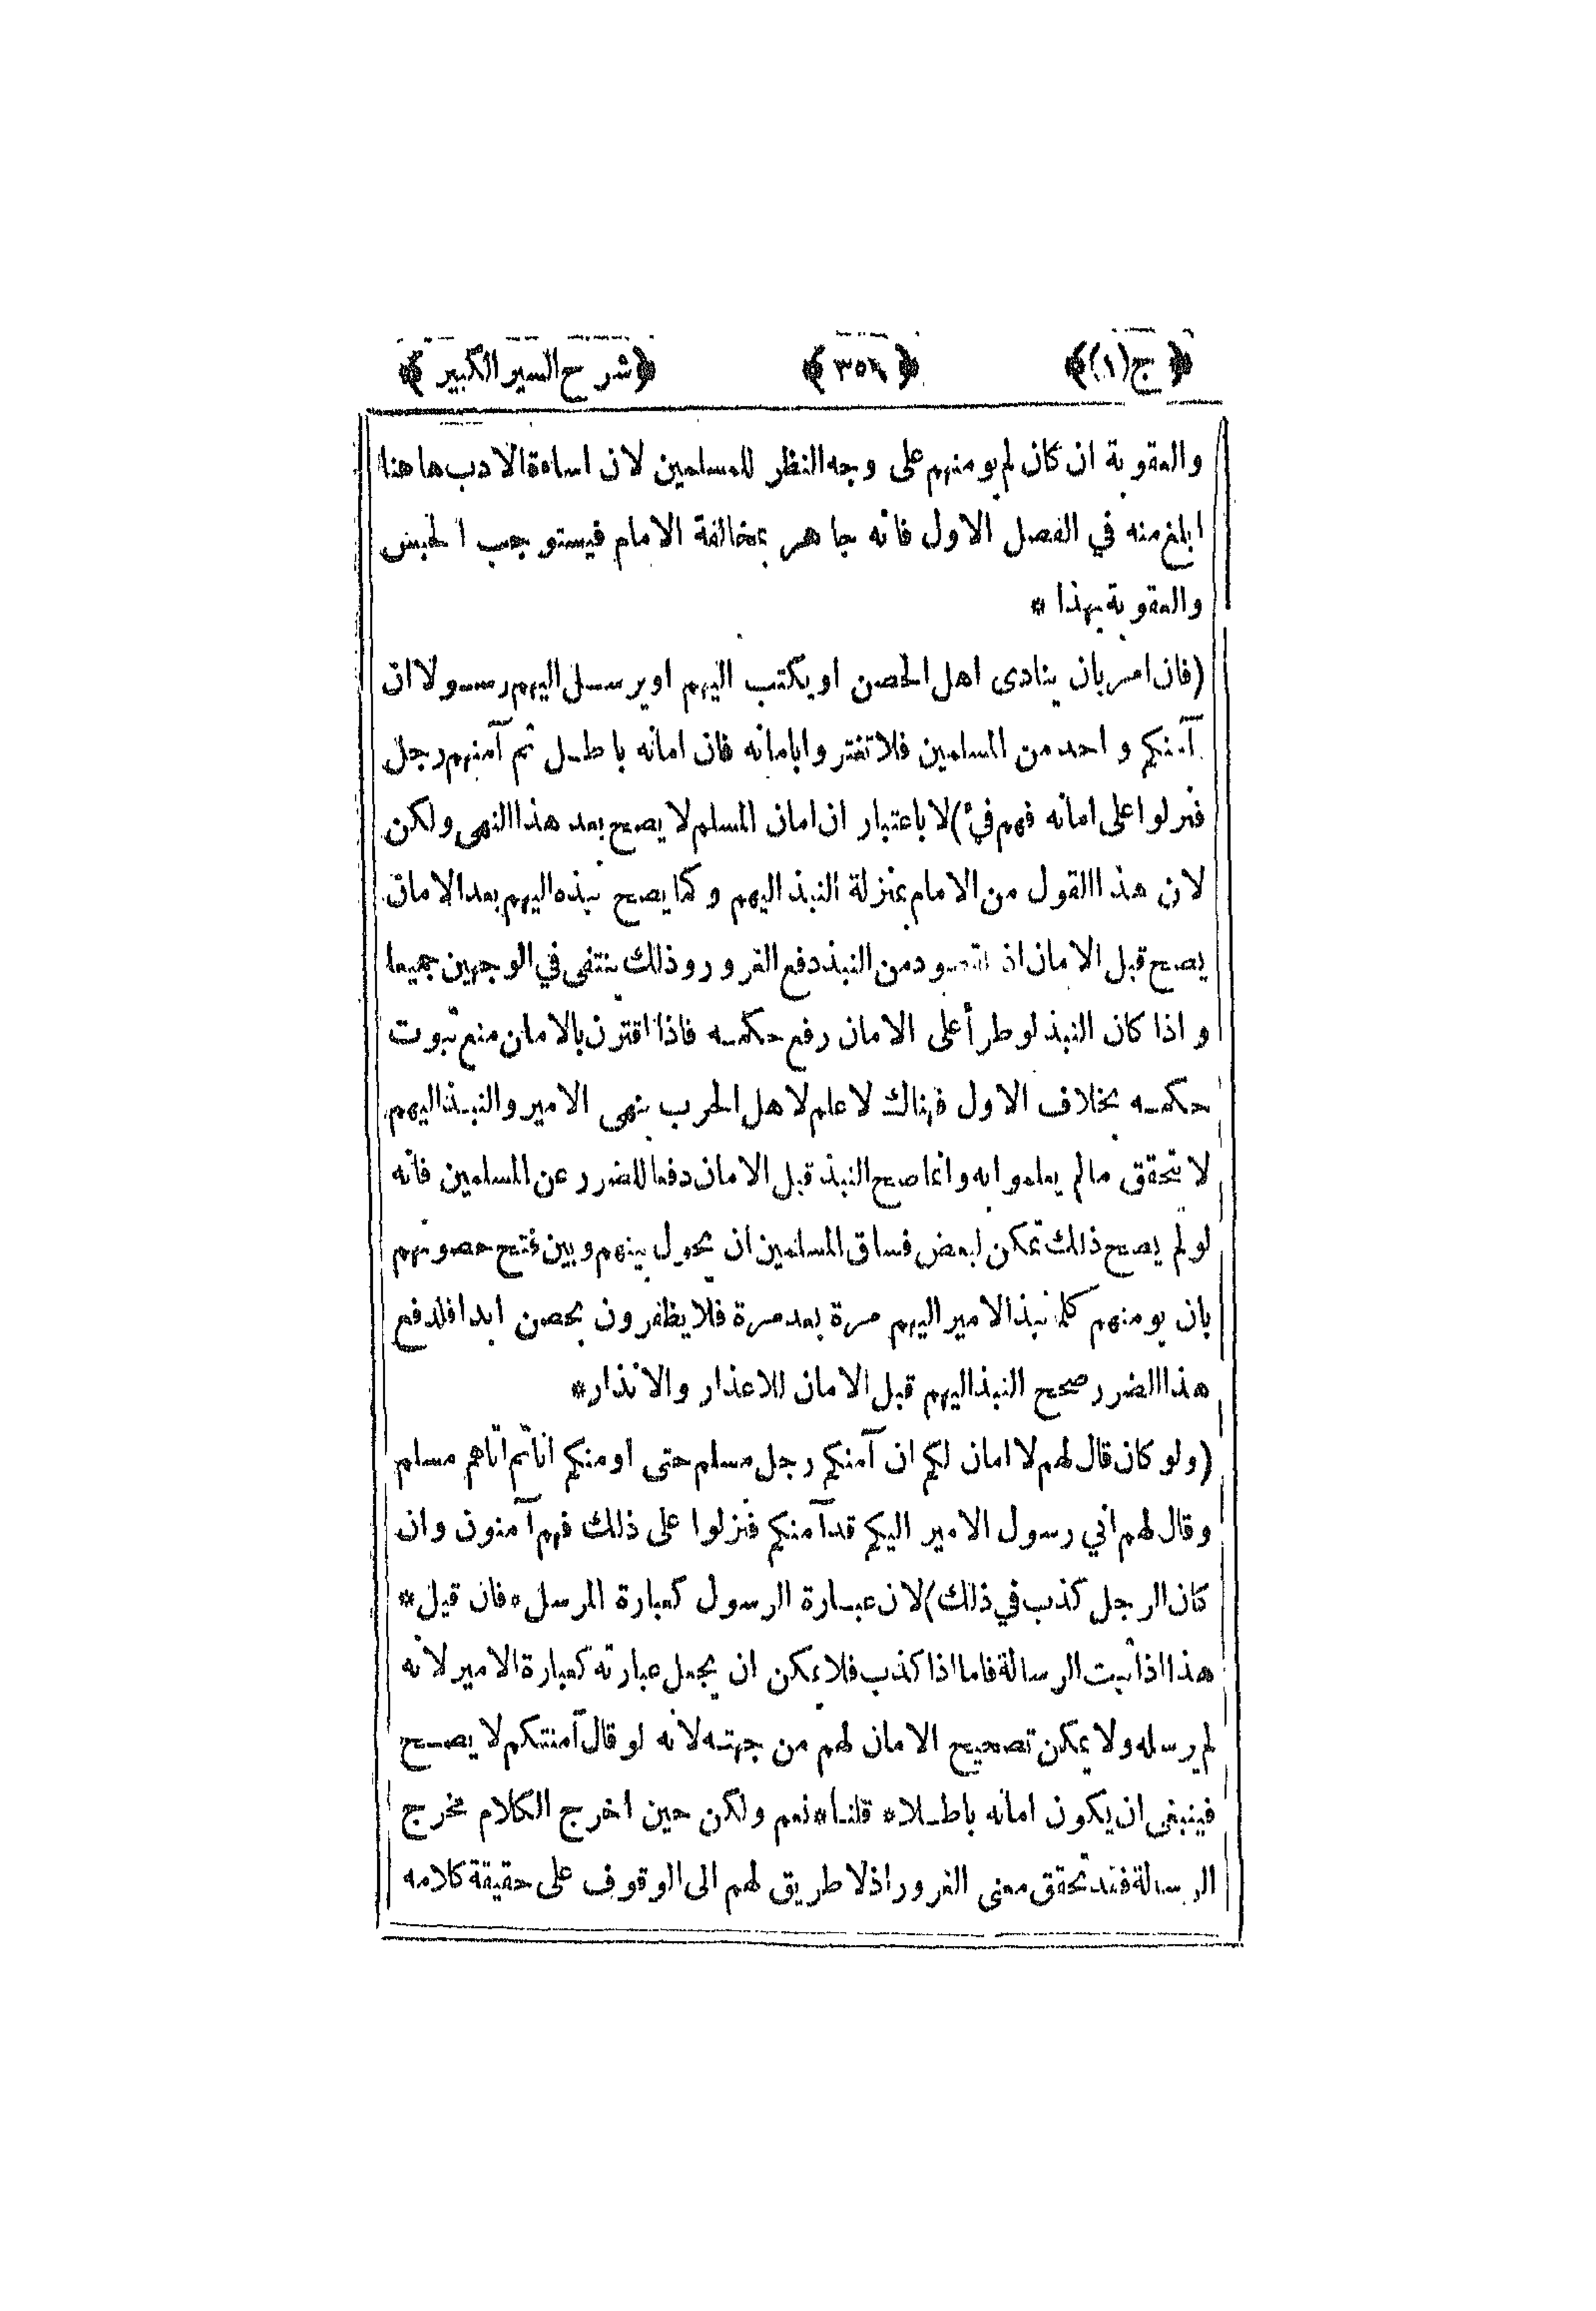 ﴿ ج(١) ﴾ ﴿ ٣٥٦ ﴾ ﴿ شرح السير الكبير ﴾
والعقوبة ان كان لم يومنهم على وجه النظر للمسلمين لان اساءة الادب هاهنا
ابلغ منه في الفصل الاول فانه جاهر بمخالفة الامام فيستوجب الحبس
والعقوبة بهذا *
(فان امر بان ينادى اهل الحصن او يكتب اليهم او يرسل اليهم رسولا ان
آمنكم واحد من المسلمين فلا تغتروا بامانه فان امانه باطل ثم آمنهم رجل
فنزلوا على امانه فهم فيء) لا باعتبار ان امان المسلم لا يصح بعد هذا النهى ولكن
لان هذا القول من الامام بمنزلة النبذ اليهم وكما يصح نبذه اليهم بعد الامان
يصح قبل الامان اذ المقصود من النبذ دفع الغرور وذلك ينتفى في الوجهين جميعا
واذا كان النبذ لو طرأ على الامان رفع حكمه فاذا اقترن بالامان منع ثبوت
حكمه بخلاف الاول فهناك لا علم لاهل الحرب بنهى الامير والنبذ اليهم
لا يتحقق مالم يعلموا به وانما صح النبذ قبل الامان دفعا للضرر عن المسلمين فانه
لو لم يصح ذلك تمكن لبعض فساق المسلمين ان يحول بينهم وبين فتح حصونهم
بان يومنهم كلما نبذ الامير اليهم مرة بعد مرة فلا يظفرون بحصن ابدا فلدفع
هذا الضرر صحح النبذ اليهم قبل الامان للاعذار والانذار *
(ولو كان قال لهم لا امان لكم ان آمنكم رجل مسلم حتى اومنكم انا ثم اتاهم مسلم
وقال لهم اني رسول الامير اليكم قد آمنكم فنزلوا على ذلك فهم آمنون وان
كان الرجل كذب في ذلك) لان عبارة الرسول كعبارة المرسل * فان قيل *
هذا اذا ثبت الرسالة فاما اذا كذب فلا يمكن ان يجعل عبارته كعبارة الامير لانه
لم يرسله ولا يمكن تصحيح الامان لهم من جهته لانه لو قال آمنتكم لا يصح
فينبغى ان يكون امانه باطلا * قلنا * نعم ولكن حين اخرج الكلام مخرج
الرسالة فقد تحقق معنى الغرور اذ لا طريق لهم الى الوقوف على حقيقة كلامه